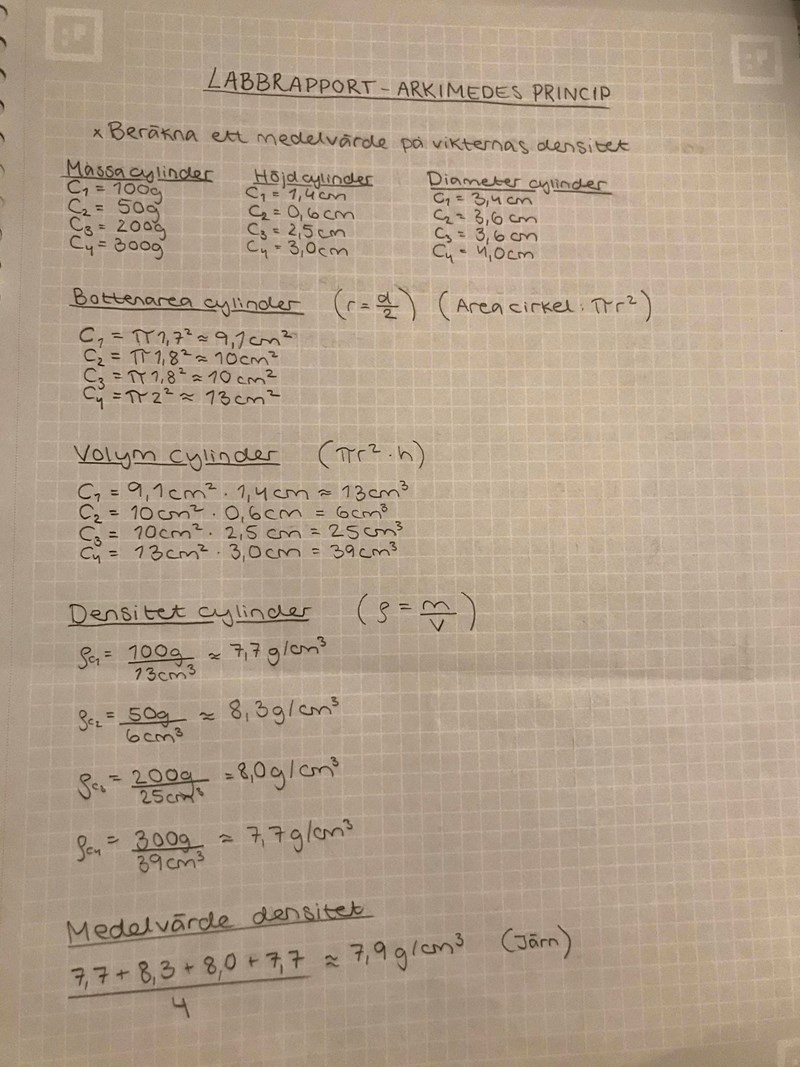 LABBRAPPORT - ARKIMEDES PRINCIP
x Beräkna ett medelvärde på vikternas densitet
Massa cylinder
C₁ = 100g
C₂ = 50g
C₃ = 200g
C₄ = 300g
Höjd cylinder
C₁ = 1,4cm
C₂ = 0,6cm
C₃ = 2,5cm
C₄ = 3,0cm
Diameter cylinder
C₁ = 3,4cm
C₂ = 3,6cm
C₃ = 3,6cm
C₄ = 4,0cm
Bottenarea cylinder (r = d/2) (Area cirkel: πr²)
C₁ = π1,7² ≈ 9,1cm²
C₂ = π1,8² ≈ 10cm²
C₃ = π1,8² ≈ 10cm²
C₄ = π2² ≈ 13cm²
Volym cylinder (πr² · h)
C₁ = 9,1cm² · 1,4cm ≈ 13cm³
C₂ = 10cm² · 0,6cm = 6cm³
C₃ = 10cm² · 2,5cm = 25cm³
C₄ = 13cm² · 3,0cm = 39cm³
Densitet cylinder (ρ = m/V)
ρc₁ = 100g/13cm³ ≈ 7,7g/cm³
ρc₂ = 50g/6cm³ ≈ 8,3g/cm³
ρc₃ = 200g/25cm³ = 8,0g/cm³
ρc₄ = 300g/39cm³ ≈ 7,7g/cm³
Medelvärde densitet
7,7 + 8,3 + 8,0 + 7,7 / 4 ≈ 7,9g/cm³ (Järn)